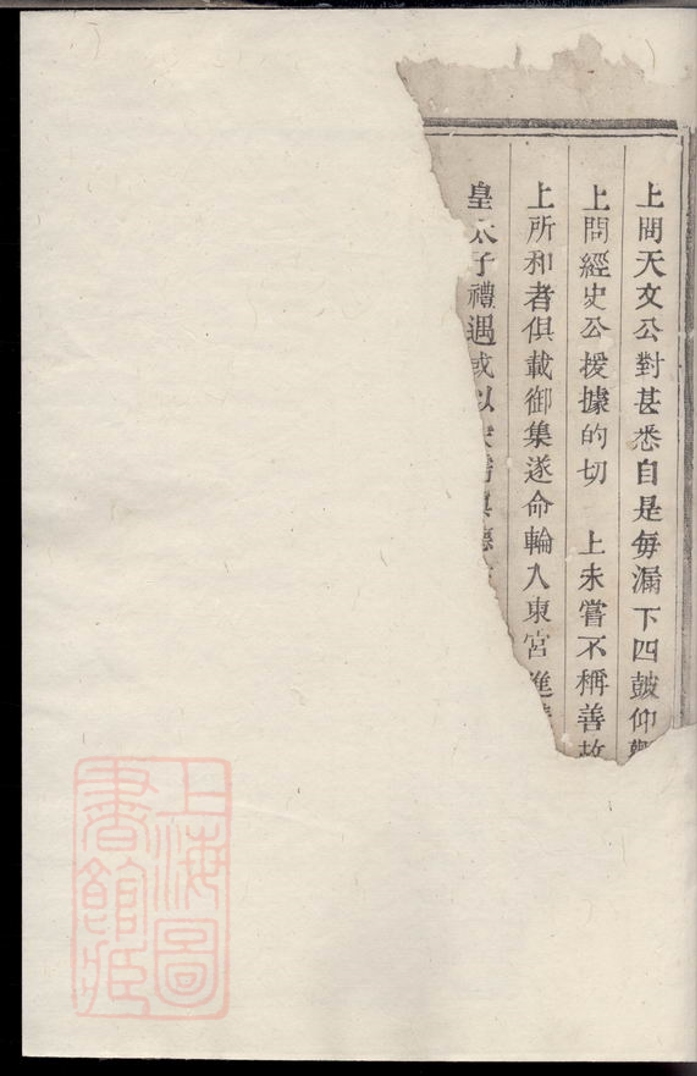 上問天文公對甚悉自是每漏下四皷仰
上問經史公援據的切　上未嘗不稱善故
上所和者俱載御集遂命輪入東宮進
皇太子禮遇或以
上海圖
書館藏